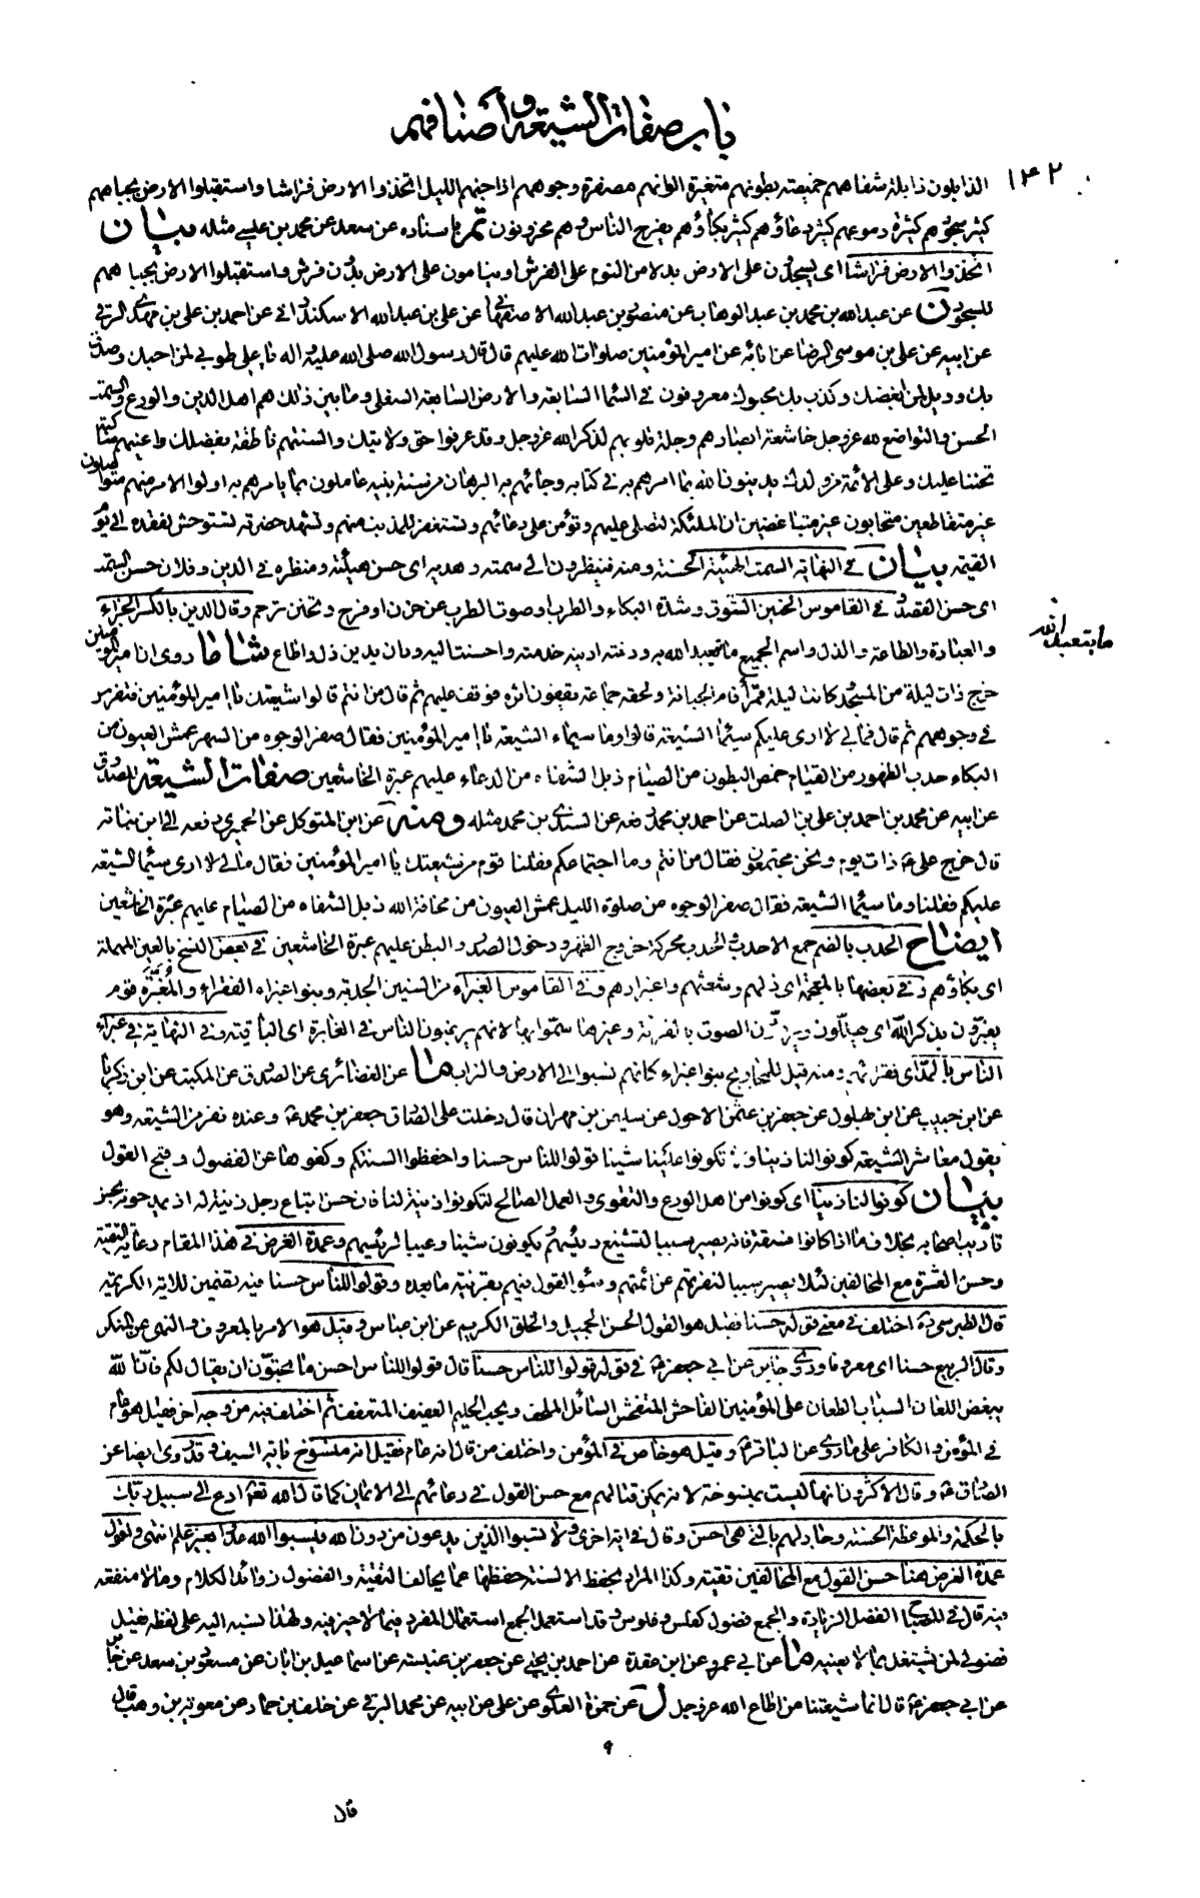 باب صفات الشيعة وأصنافهم
١٤٢
الذابلون ذابلة شفاههم خميصة بطونهم متغيرة الوانهم مصفرة وجوههم اذا جنهم الليل اتخذوا الارض فراشا واستقبلوا الارض بجباههم
كثير سجودهم كثيرة دموعهم كثير دعاؤهم كثير بكاؤهم يفرح الناس وهم محزونون تمر باسناده عن سعد عن محمد بن عيسى مثله بيان
اتخذوا الارض فراشا اى يسجدون على الارض بدلا من النوم على الفرش او ينامون على الارض بدون فرش واستقبلوا الارض بجباههم
للسجود ن عن عبد الله بن محمد بن عبد الوهاب عن منصور بن عبد الله الاصفهاني عن علي بن عبد الله الاسكندراني عن احمد بن علي بن مهدي الرقي
عن ابيه عن علي بن موسى الرضا عن ابائه عن امير المؤمنين صلوات الله عليهم قال قال رسول الله صلى الله عليه واله يا علي طوبى لمن احبك وصدق
بك وويل لمن ابغضك وكذب بك محبوك معروفون في السماء السابعة والارض السابعة السفلى وما بين ذلك هم اهل الدين والورع والسمت
الحسن والتواضع لله عز وجل خاشعة ابصارهم وجلة قلوبهم لذكر الله عز وجل وقد عرفوا حق ولايتك والسنتهم ناطقة بفضلك واعينهم ساكبة
تحننا عليك وعلى الائمة من ولدك يدينون الله بما امرهم به في كتابه وجائهم به البرهان من سنة نبيه عاملون بما يامرهم به اولوا الامر منهم متواصلون
غير متقاطعين متحابون غير متباغضين ان الملئكة لتصلي عليهم وتؤمن على دعائهم وتستغفر للمذنب منهم وتشهد حضرته وتستوحش لفقده الى يوم
القيمة بيان في النهاية السمت الهيئة الحسنة ومنه فينظرون الى سمته وهديه اى حسن هيئته ومنظره في الدين وفلان حسن السمت
اى حسن القصد وفي القاموس الحنين الشوق وشدة البكاء والطرب او صوت الطرب عن حزن او فرح وتحنن ترحم وقال الدين بالكسر الجزاء
والعبادة والطاعة والذل واسم لجميع ما يتعبد الله به ودنته ادينه خدمته واحسنت اليه ودان يدين ذل واطاع شا طا روى ان امير المؤمنين
ما يتعبد الله
خرج ذات ليلة من المسجد وكانت ليلة قمراء فام الجبانة ولحقه جماعة يقفون اثره فوقف عليهم ثم قال من انتم قالوا شيعتك يا امير المؤمنين فتفرس
في وجوههم ثم قال فمالي لا ارى عليكم سيماء الشيعة قالوا وما سيماء الشيعة يا امير المؤمنين فقال صفر الوجوه من السهر عمش العيون من
البكاء حدب الظهور من القيام خمص البطون من الصيام ذبل الشفاه من الدعاء عليهم غبرة الخاشعين صفات الشيعة للصدوق
عن ابيه عن محمد بن احمد بن علي بن الصلت عن احمد بن محمد رفعه عن السندي بن محمد مثله ومنه عن ابن المتوكل عن الحميري رفعه الى ابن نباتة
قال خرج علي ع ذات يوم ونحن مجتمعون فقال من انتم وما اجتماعكم فقلنا قوم من شيعتك يا امير المؤمنين فقال مالي لا ارى سيماء الشيعة
عليكم فقلنا وما سيماء الشيعة فقال صفر الوجوه من صلوة الليل عمش العيون من مخافة الله ذبل الشفاه من الصيام عليهم غبرة الخاشعين
ايضاح الحدب بالضم جمع الاحدب والحدب محركة خروج الظهر ودخول الصدر والبطن عليهم عبرة الخاشعين في بعض النسخ بالعين المهملة
اى بكاؤهم وفي بعضها بالمعجمة اى ذلهم وشعثهم واغبرارهم وفي القاموس الغبراء من السنين الجدبة وبنو غبراء الفقراء والمغبرة قوم
يغبرون بذكر الله اى يهللون ويرددون الصوت بالقراءة وغيرها سموا بها لانهم يرغبون الناس في الغابرة اى الباقية وفي النهاية في غبراء
الناس بالمد اى فقرائهم ومنه قيل للمحاويج بنو غبراء كانهم نسبوا الى الارض والتراب ما عن الغضائري عن الصدوق عن المكتب عن ابن زكريا
عن ابن حبيب عن ابن بهلول عن جعفر بن عثمن الاحول عن سليمن بن مهران قال دخلت على الصادق جعفر بن محمد ع وعنده نفر من الشيعة وهو
يقول معاشر الشيعة كونوا لنا زينا ولا تكونوا علينا شينا قولوا للناس حسنا واحفظوا السنتكم وكفوها عن الفضول وقبح القول
بيان كونوا لنا زينا اى كونوا من اهل الورع والتقوى والعمل الصالح لتكونوا زينة لنا فان حسن اتباع رجل زينة له اذ يمدحونه بحسن
تاديب اصحابه بخلاف ما اذا كانوا فسقة فانه يصير سببا لتشنيع رئيسهم ويكونون شينا وعيبا لرئيسهم وعمدة الغرض في هذا المقام رعاية التقية
وحسن العشرة مع المخالفين لئلا يصير سببا لنفرتهم عن ائمتهم وسوء القول فيهم بقرينة ما بعده وقولوا للناس حسنا فيه تضمين للاية الكريمة
قال الطبرسي ره اختلف في معنى قوله حسنا فقيل هو القول الحسن الجميل والخلق الكريم عن ابن عباس وقيل هو الامر بالمعروف والنهي عن المنكر
وقال الربيع حسنا اى معروفا وروى جابر عن ابي جعفر ع في قوله قولوا للناس حسنا قال قولوا للناس احسن ما تحبون ان يقال لكم فان الله
يبغض اللعان السباب الطعان على المؤمنين الفاحش المتفحش السائل الملحف ويحب الحليم العفيف المتعفف ثم اختلف فيه من وجه اخر فقيل هو عام
في المؤمن والكافر على ما روى عن الباقر ع وقيل هو خاص في المؤمن واختلف من قال انه عام فقيل انه منسوخ باية السيف وقد روى ايضا عن
الصادق ع وقال الاكثرون انها ليست بمنسوخة لانه يمكن قتالهم مع حسن القول في دعائهم الى الايمان كما قال الله تعه ادع الى سبيل ربك
بالحكمة والموعظة الحسنة وجادلهم بالتي هي احسن وقال في اية اخرى ولا تسبوا الذين يدعون من دون الله فيسبوا الله عدوا بغير علم انتهى واقول
عمدة الغرض هنا حسن القول مع المخالفين تقية وكذا المراد بحفظ الالسنة حفظها عما يخالف التقية والفضول زوائد الكلام وما لا منفعة
فيه قال في المصباح الفضل الزيادة والجمع فضول كفلس وفلوس وقد استعمل الجمع استعمال المفرد فيما لا خير فيه ولهذا نسب اليه على لفظه فقيل
فضولي لمن يشتغل بما لا يعنيه ما عن ابي عمرو عن ابن عقدة عن احمد بن يحيى عن جعفر بن عنبسة عن اسماعيل بن ابان عن مسعود بن سعد عن جابر
عن ابي جعفر ع قال انما شيعتنا من اطاع الله عز وجل ل عن حمزة العلوي عن علي عن ابيه عن محمد البرقي عن خلف بن حماد عن معوية بن وهب قال
٩
قال